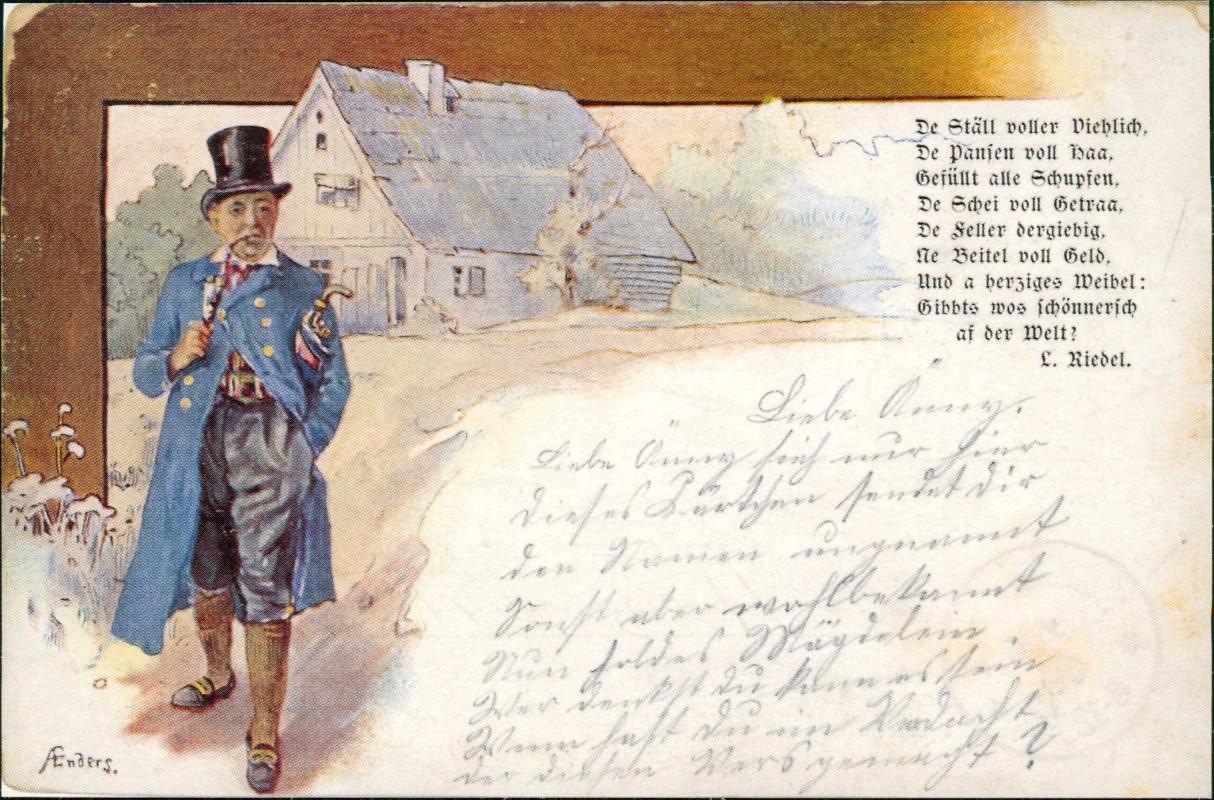 De Ställ voller Viehlich,
De Pansen voll Haa,
Gefüllt alle Schupfen,
De Schei voll Getraa,
De Feller dergiebig,
Ne Beitel voll Geld,
Und a herziges Weibel:
Gibbts wos schönnersch
af der Welt?
L. Riedel.
Liebe Änny.
Liebe Änny sieh nur hier
dieses Kärtchen sendet dir
den Namen ungenannt
Sonst aber wohlbekannt
Nun holdes Mägdelein.
Wer denkst du kann es sein
Wenn hast du im Verdacht
der diesen Vers gemacht?
AEnders.